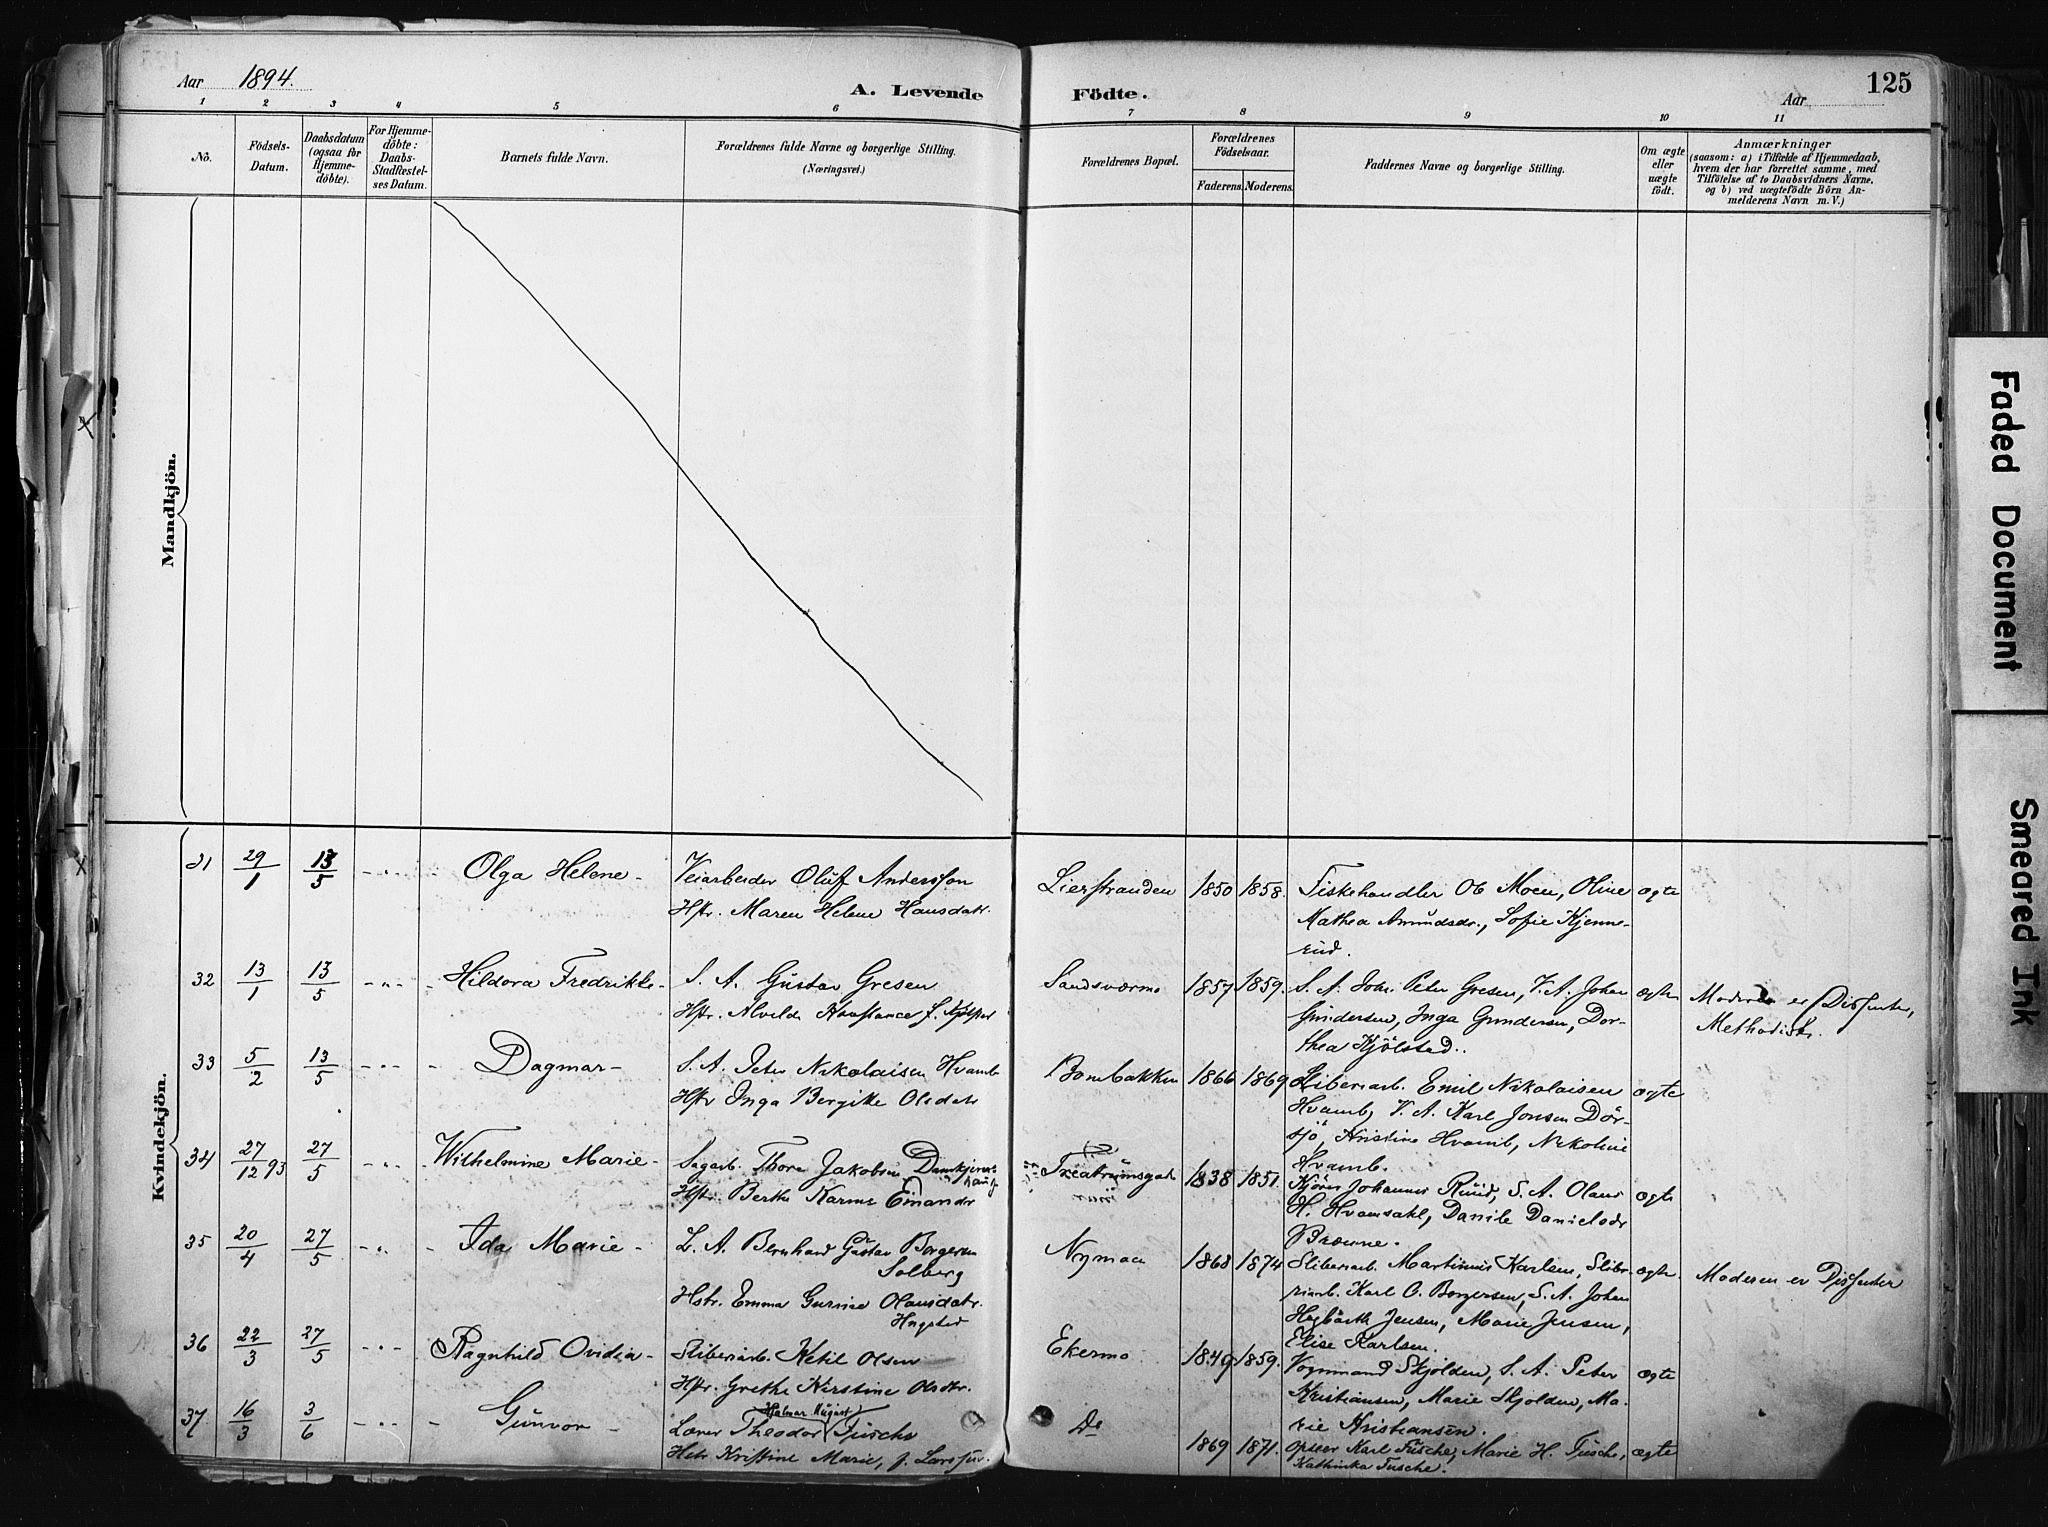 Aar 1894.
A. Levende Födte.
Aar
125
1 2 3 4 5 6 7 8 9 10 11
No.
Födsels-
Datum.
Daabsdatum
(ogsaa for
Hjemme-
döbte).
For Hjemme-
döbte:
Daabs-
Stadfæstel-
ses Datum.
Barnets fulde Navn.
Forældrenes fulde Navne og borgerlige Stilling.
(Næringsvei.)
Forældrenes Bopæl.
Forældrenes
Födselsaar.
Faderens. Moderens.
Faddernes Navne og borgerlige Stilling.
Om ægte
eller
uægte
födt.
Anmærkninger
(saasom: a) i Tilfælde af Hjemmedaab,
hvem der har forrettet samme, med
Tilföielse af to Daabsvidners Navne,
og b) ved uægtefödte Börn An-
melderens Navn m. V.)
Mandkjön.
Kvindekjön.
31 29/1 13/5 - " - Olga Helene - Veiarbeider Oluf Andersson Lierstranden 1850 1858. Fiskehandler Ob Moen, Oline ægte
Hstr. Maren Helene Hansdatr. Mathea Amundsdr., Sofie Kjenne-
rud.
32 13/1 13/5 - " - Hildora Fredrikke - S. A. Gustav Gresen Sandsværmo 1857 1859. S. A. Joh. Peter Gresen, V. A. Johan ægte Moderen er Dissenter,
Hstr. Alvilde Konstance f. Kjölstad Gundersen, Inga Gundersen, Dor- Methodist.
thea Kjölstad.
33 5/2 13/5 - " - Dagmar - S. A. Peter Nikolaisen Hvamb Bombakken 1866 1869 Sliberiarb. Emil Nikolaisen ægte
Hstr Inga Bergitte Olsdatr Hvamb, V. A. Karl Jonsen Dör-
sjö, Kristine Hvamb, Nikoline
Hvamb.
34 27/12 93 27/5 - " - Wilhelmine Marie - Sagarb. Thore Jakobsen 1838 1851. Johannes Ruud, S. A. Olaus ægte
Hstr. Berthe Karine H. Hvamsahl, Danielsdr
35 20/4 27/5 - " - Ida Marie - L. A. Bernhard Gustav Borgersen Nymoen 1868 1874 Sliberiarb. Martinius Karlsen, Slibe- ægte. Moderen er Dissenter
Solberg riarb. Karl O. Borgersen, S. A. Johan
Hstr. Emma Gurine Olausdatr. Jensen, Marie Jensen,
Elise Karlsen.
36 22/3 27/5 - " - Ragnhild Ovidia - Sliberiarb. Ketil Olsen Ekermo 1849 1859. Vognmand Skjolden, S. A. Peter ægte
Hstr. Grethe Kirstine Olsdtr. Kristiansen, Marie Skjolden, Ma-
rie Kristiansen.
37 16/3 3/6 - " - Gunvor - Lærer Theodor Hjalmar August Tusche Do 1869 1871. Karl Tusche, Marie H. Tusche, ægte
Hstr Kristine Marie, f. Larssen. Kathinka Tusche.
Faded Document
Smeared Ink